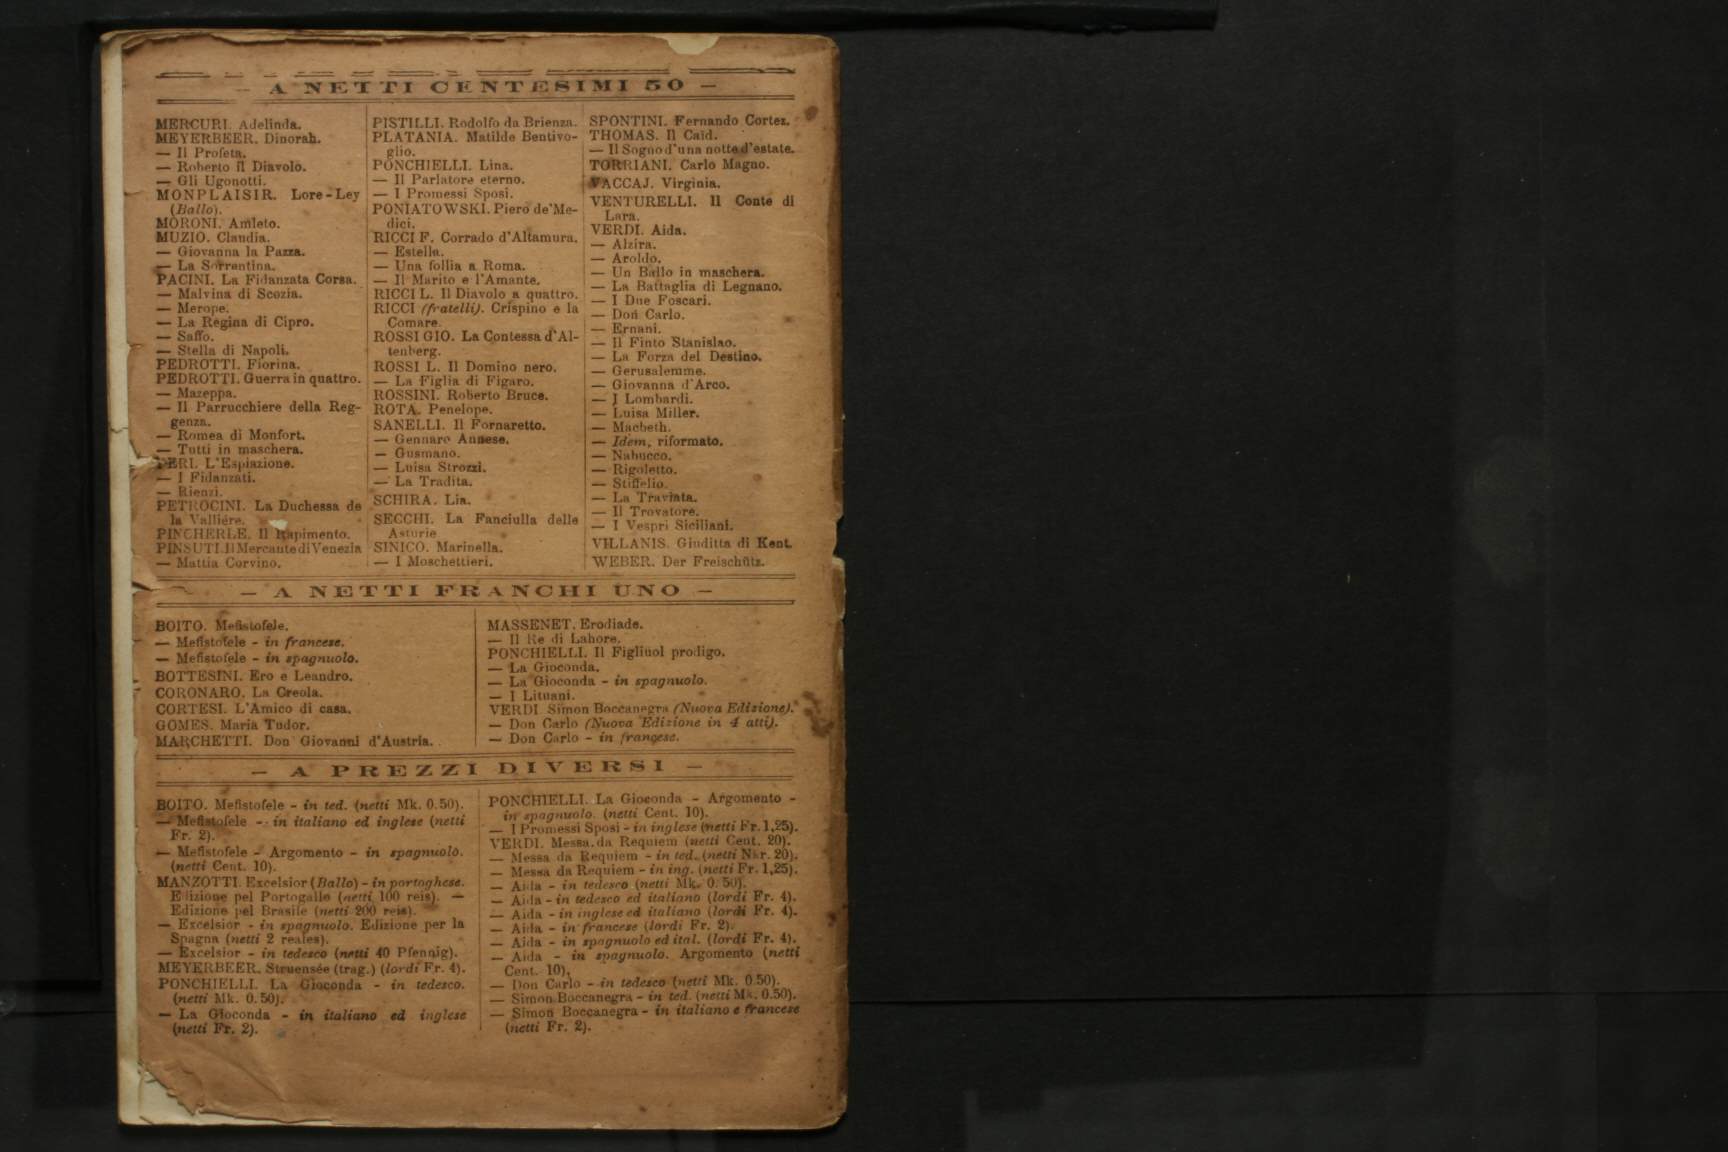 — A NETTI CENTESIMI 50 —
MERCURI. Adelinda.
MEYERBEER. Dinorah.
— Il Profeta.
— Roberto il Diavolo.
— Gli Ugonotti.
MONPLAISIR. Lore-Ley
(Ballo).
MORONI. Amleto.
MUZIO. Claudia.
— Giovanna la Pazza.
— La Sorrentina.
PACINI. La Fidanzata Corsa.
— Malvina di Scozia.
— Merope.
— La Regina di Cipro.
— Saffo.
— Stella di Napoli.
PEDROTTI. Fiorina.
PEDROTTI. Guerra in quattro.
— Mazeppa.
— Il Parrucchiere della Reg-
genza.
— Romea di Monfort.
— Tutti in maschera.
PERI. L'Espiazione.
— I Fidanzati.
— Rienzi.
PETROCINI. La Duchessa de
la Vallière.
PINCHERLE. Il Rapimento.
PINSUTI. Il Mercante di Venezia
— Mattia Corvino.
PISTILLI. Rodolfo da Brienza.
PLATANIA. Matilde Bentivo-
glio.
PONCHIELLI. Lina.
— Il Parlatore eterno.
— I Promessi Sposi.
PONIATOWSKI. Piero de'Me-
dici.
RICCI F. Corrado d'Altamura.
— Estella.
— Una follia a Roma.
— Il Marito e l'Amante.
RICCI L. Il Diavolo a quattro.
RICCI (fratelli). Crispino e la
Comare.
ROSSI GIO. La Contessa d'Al-
tenberg.
ROSSI L. Il Domino nero.
— La Figlia di Figaro.
ROSSINI. Roberto Bruce.
ROTA. Penelope.
SANELLI. Il Fornaretto.
— Gennaro Annese.
— Gusmano.
— Luisa Strozzi.
— La Tradita.
SCHIRA. Lia.
SECCHI. La Fanciulla delle
Asturie
SINICO. Marinella.
— I Moschettieri.
SPONTINI. Fernando Cortez.
THOMAS. Il Caïd.
— Il Sogno d'una notte d'estate.
TORRIANI. Carlo Magno.
VACCAJ. Virginia.
VENTURELLI. Il Conte di
Lara.
VERDI. Aida.
— Alzira.
— Aroldo.
— Un Ballo in maschera.
— La Battaglia di Legnano.
— I Due Foscari.
— Don Carlo.
— Ernani.
— Il Finto Stanislao.
— La Forza del Destino.
— Gerusalemme.
— Giovanna d'Arco.
— I Lombardi.
— Luisa Miller.
— Macbeth.
— Idem, riformato.
— Nabucco.
— Rigoletto.
— Stiffelio.
— La Traviata.
— Il Trovatore.
— I Vespri Siciliani.
VILLANIS. Giuditta di Kent.
WEBER. Der Freischütz.
— A NETTI FRANCHI UNO —
BOITO. Mefistofele.
— Mefistofele - in francese.
— Mefistofele - in spagnuolo.
BOTTESINI. Ero e Leandro.
CORONARO. La Creola.
CORTESI. L'Amico di casa.
GOMES. Maria Tudor.
MARCHETTI. Don Giovanni d'Austria.
MASSENET. Erodiade.
— Il Re di Lahore.
PONCHIELLI. Il Figliuol prodigo.
— La Gioconda.
— La Gioconda - in spagnuolo.
— I Lituani.
VERDI. Simon Boccanegra (Nuova Edizione).
— Don Carlo (Nuova Edizione in 4 atti).
— Don Carlo - in francese.
— A PREZZI DIVERSI —
BOITO. Mefistofele - in ted. (netti Mk. 0.50).
— Mefistofele - in italiano ed inglese (netti
Fr. 2).
— Mefistofele - Argomento - in spagnuolo.
(netti Cent. 10).
MANZOTTI. Excelsior (Ballo) - in portoghese.
Edizione pel Portogallo (netti 100 reis). —
Edizione pel Brasile (netti 200 reis).
— Excelsior - in spagnuolo. Edizione per la
Spagna (netti 2 reales).
— Excelsior - in tedesco (netti 40 Pfennig).
MEYERBEER. Struensée (trag.) (lordi Fr. 4).
PONCHIELLI. La Gioconda - in tedesco.
(netti Mk. 0.50).
— La Gioconda - in italiano ed inglese
(netti Fr. 2).
PONCHIELLI. La Gioconda - Argomento -
in spagnuolo. (netti Cent. 10).
— I Promessi Sposi - in inglese (netti Fr. 1,25).
VERDI. Messa da Requiem (netti Cent. 20).
— Messa da Requiem - in ted. (netti Nkr. 20).
— Messa da Requiem - in ing. (netti Fr. 1,25).
— Aida - in tedesco (netti Mk. 0.50).
— Aida - in tedesco ed italiano (lordi Fr. 4).
— Aida - in inglese ed italiano (lordi Fr. 4).
— Aida - in francese (lordi Fr. 2).
— Aida - in spagnuolo ed ital. (lordi Fr. 4).
— Aida - in spagnuolo. Argomento (netti
Cent. 10).
— Don Carlo - in tedesco (netti Mk. 0.50).
— Simon Boccanegra - in ted. (netti Mk. 0.50).
— Simon Boccanegra - in italiano e francese
(netti Fr. 2).